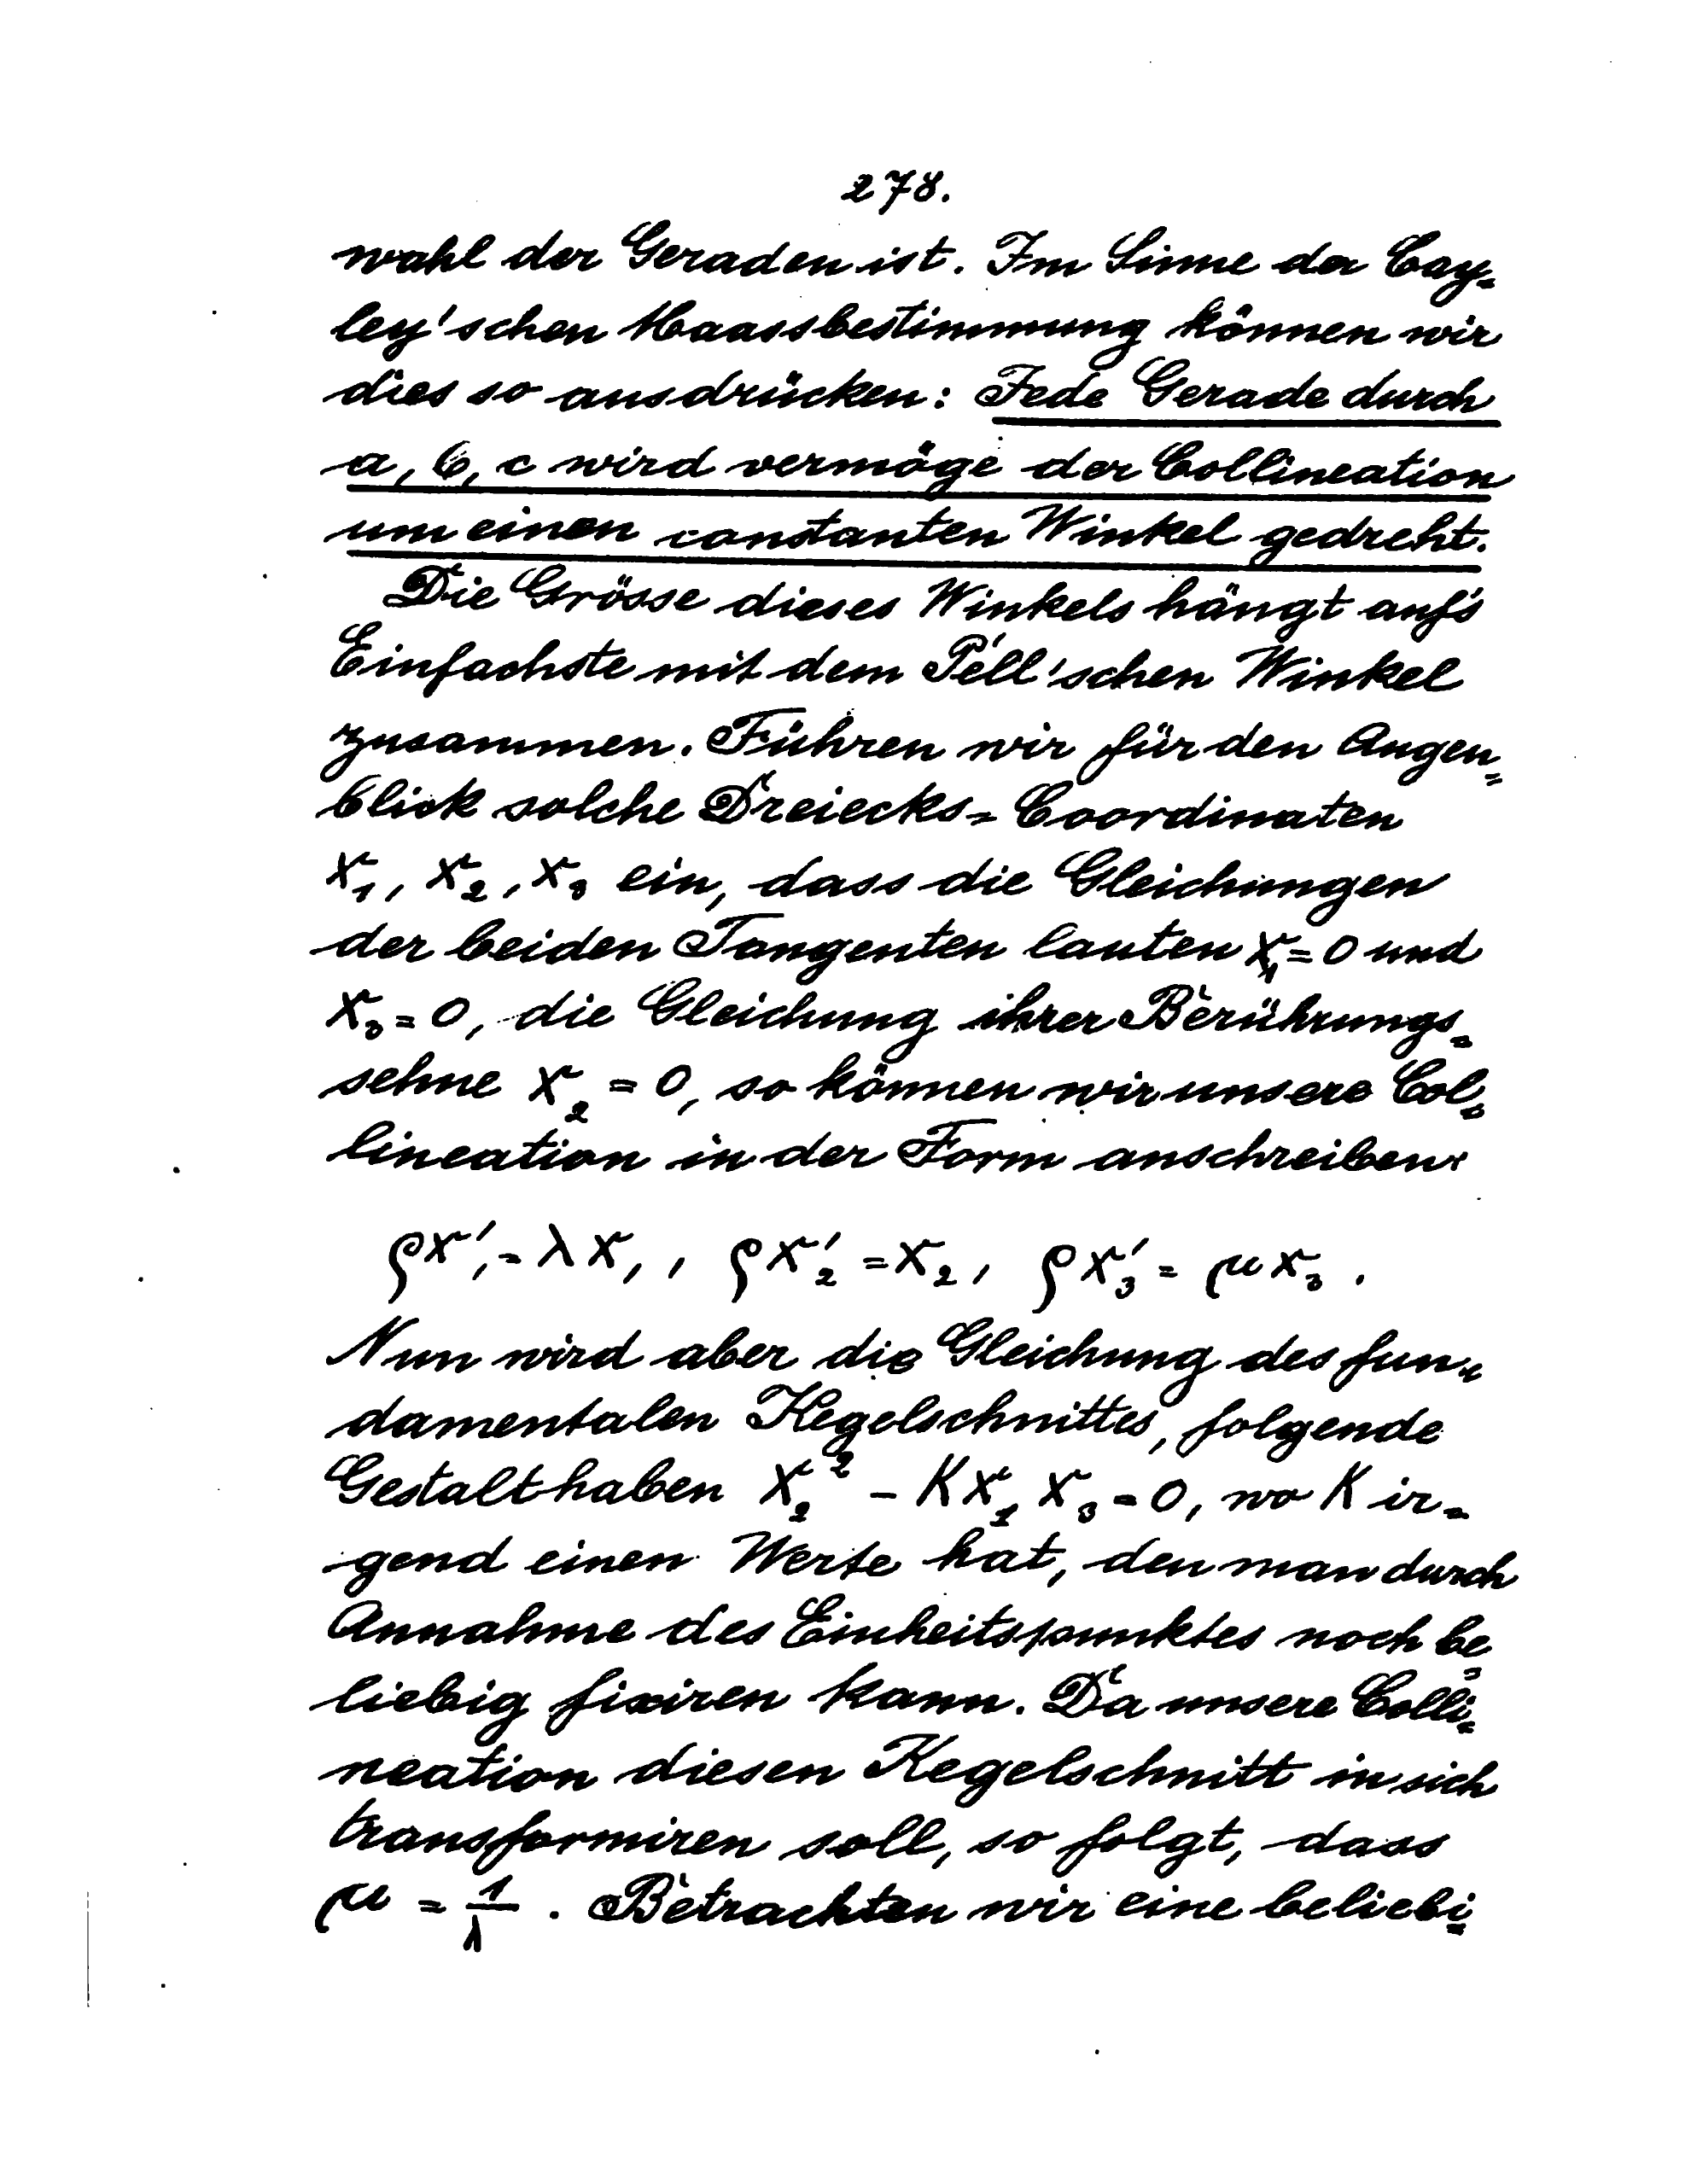 278.
wahl der Geraden ist. Im Sinne der Cay=
ley'schen Maassbestimmung können wir
dies so ausdrücken: Jede Gerade durch
a, b, c wird vermöge der Collineation
um einen constanten Winkel gedreht.
Die Grösse dieses Winkels hängt auf's
Einfachste mit dem Pell'schen Winkel
zusammen. Führen wir für den Augen=
blick solche Dreiecks=Coordinaten
x₁, x₂, x₃ ein, dass die Gleichungen
der beiden Tangenten lauten x₁=0 und
x₃=0, die Gleichung ihrer Berührungs=
sehne x₂ = 0, so können wir unsere Col=
lineation in der Form anschreiben:
ρx'₁ = λx₁, ρx'₂ = x₂, ρx'₃ = μx₃.
Nun wird aber die Gleichung des fun=
damentalen Kegelschnittes, folgende
Gestalt haben x₂² - Kx₁x₃ = 0, wo K ir=
gend einen Werte hat, den man durch
Annahme des Einheitspunktes noch be=
liebig fixiren kann. Da unsere Colli=
neation diesen Kegelschnitt in sich
transformiren soll, so folgt, dass
μ = 1/λ. Betrachten wir eine beliebi=